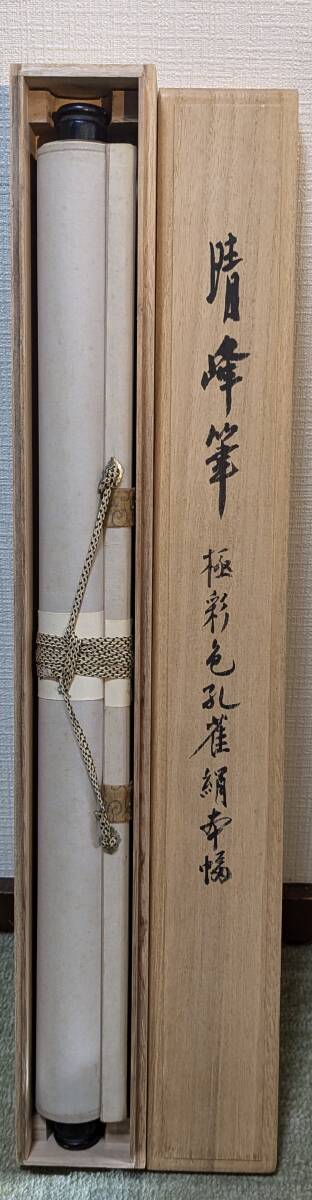 晴峰筆 極彩色孔雀絹本幅